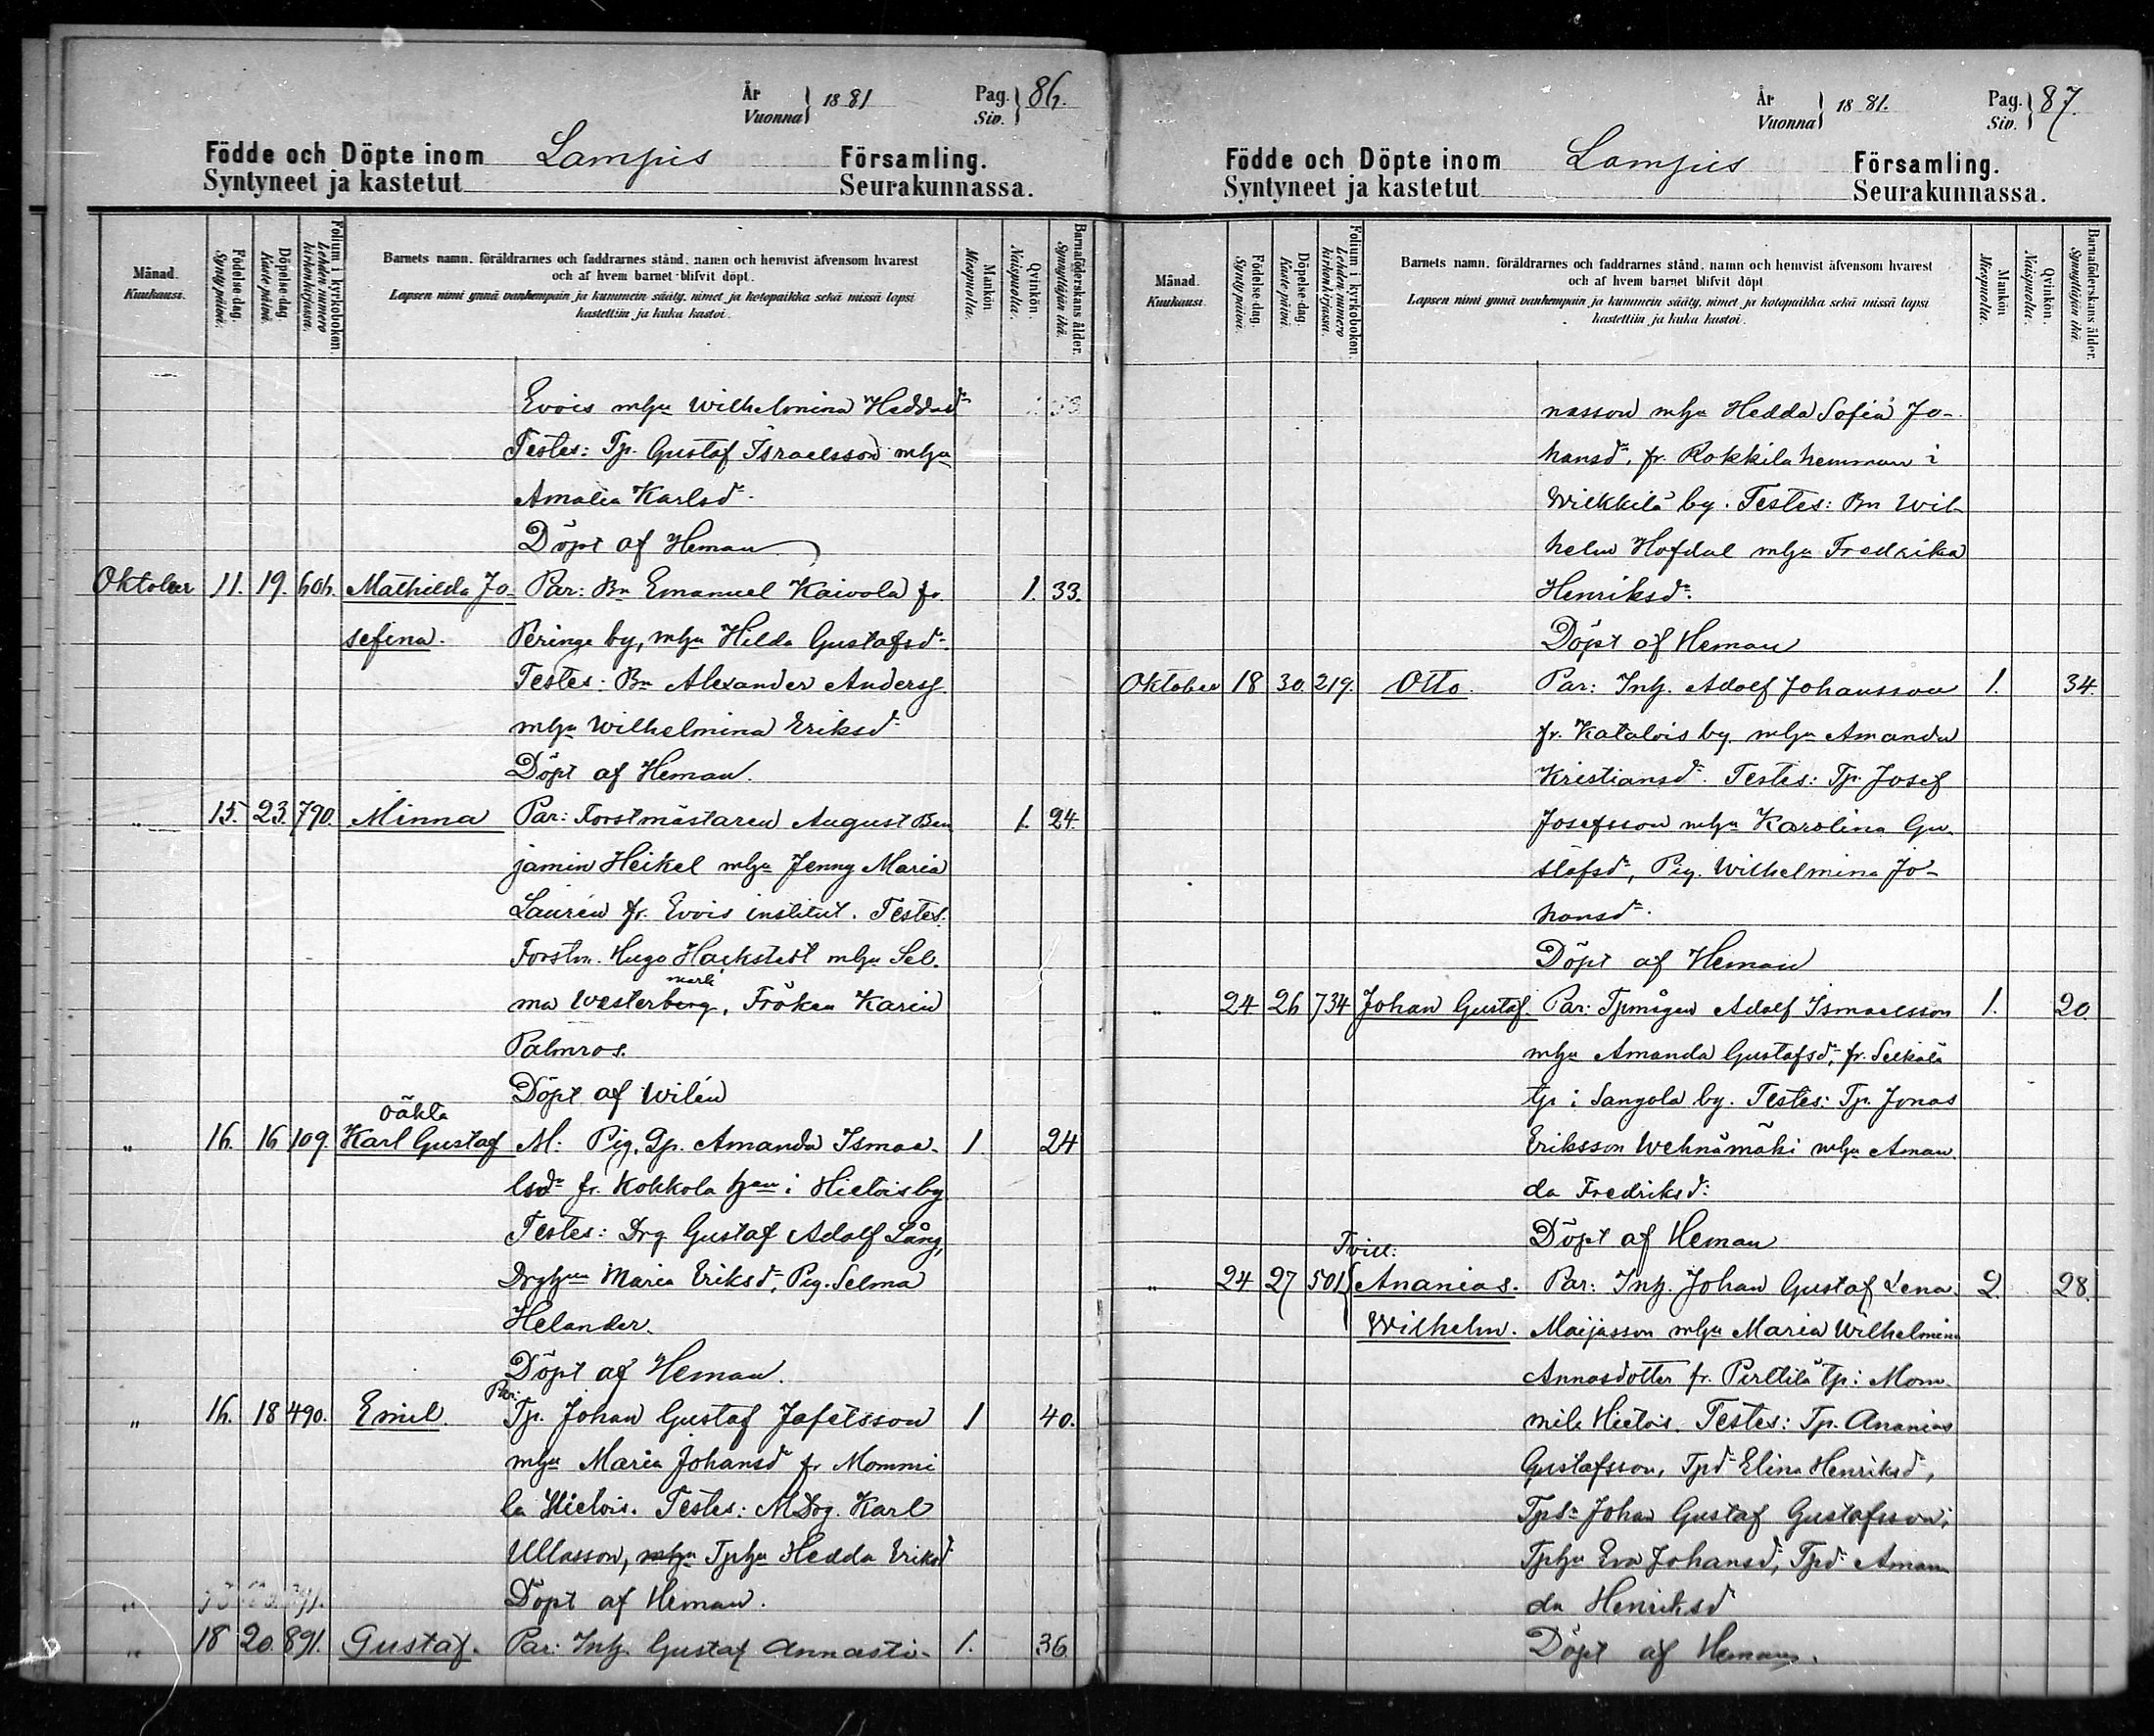 År Vuonna 1881
Pag. Siv. 86.
Födde och Döpte inom Lampis Församling.
Syntyneet ja kastetut Seurakunnassa.
Månad. Kuukausi.
Födelse-dag. Synty päivä.
Döpelse-dag. Kaste päivä.
Folium i kyrkoboken. Lehden numero kirkonkirjassa.
Barnets namn, föräldrarnes och faddrarnes stånd, namn och hemvist äfvensom hvarest
och af hvem barnet blifvit döpt.
Lapsen nimi ynnä vanhempain ja kummein sääty, nimet ja kotopaikka sekä missä lapsi
kastettiin ja kuka kastoi.
Mankön Miespuolta.
Qvinkön. Naispuolta.
Barnaföderskans ålder. Synnyttäjän ikä.
Evois mhu Wilhelmina Heddasdr 33
Testes: Tp. Gustaf Israelsson mhu
Amalia Karlsdr.
Döpt af Heman
Oktober 11. 19. 606. Mathilda Jo- Par: Bn Emanuel Kaivola fr. 1. 33.
sefina. Peringe by, mhu Hilda Gustafsdr.
Testes: Bn Alexander Andersg
mhu Wilhelmina Eriksdr
Döpt af Heman.
" 15. 23. 790. Minna Par: Forstmästaren August Ben 1. 24.
jamin Heikel mhu Jenny Maria
Laurén fr. Evois institut. Testes.
Forstm. Hugo Hackstedt mhu Sel.
mark
ma Westerberg, Fröken Karin
Palmros.
Döpt af Wilén
oäkta
" 16. 16 109. Karl Gustaf M: Pig. Dp. Amanda Ismae- 1. 24
lsdr fr. Kokkola hman i Hietois by
Testes: Drg Gustaf Adolf Lång,
Drghun Maria Eriksdr, Pig. Selma
Helander.
Döpt af Heman.
Par:
" 16. 18 490. Emil. Tp. Johan Gustaf Jafetsson 1 40.
mhu Maria Johansdr fr Mommi
la Hietois. Testes: MDrg. Karl
Ullasson, mhu Tphu Hedda Eriksdr
Döpt af Heman.
" 18 20. 891. Gustaf. Par: Inh. Gustaf Annasti- 1. 36
År Vuonna 1881.
Pag. Siv. 87.
Födde och Döpte inom Lampis Församling.
Syntyneet ja kastetut Seurakunnassa.
Månad. Kuukausi.
Födelse-dag. Synty päivä.
Döpelse-dag. Kaste päivä.
Folium i kyrkoboken. Lehden numero kirkonkirjassa.
Barnets namn, föräldrarnes och faddrarnes stånd, namn och hemvist äfvensom hvarest
och af hvem barnet blifvit döpt.
Lapsen nimi ynnä vanhempain ja kummein sääty, nimet ja kotopaikka sekä missä lapsi
kastettiin ja kuka kastoi.
Mankön Miespuolta.
Qvinkön. Naispuolta.
Barnaföderskans ålder. Synnyttäjän ikä.
nasson mhu Hedda Sofia Jo-
hansdr, fr. Rokkila hemman i
Wilkkilä by. Testes: Bn Wil-
helm Hofdal mhu Fredrika
Henriksdr.
Döpt af Heman
Oktober 18 30. 219. Otto. Par: Inh. Adolf Johansson 1. 34.
fr. Katalois by. mhu Amanda
Kristiansdr. Testes: Tp. Josef
Josefsson mhu Karolina Gu-
stafsdr, Pig. Wilhelmina Jo-
hansdr.
Döpt af Heman
" 24 26 734 Johan Gustaf. Par: Tpmågen Adolf Ismaelsson 1. 20.
mhu Amanda Gustafsdr, fr. Seikälä
tp i Sangola by. Testes: Tp. Jonas
Eriksson Wehnämäki mhu Aman
da Fredriksdr:
Döpt af Heman
Tvill:
" 24 27 501 Ananias. Par: Inh. Johan Gustaf Lena- 2. 28.
Wilhelm. Maijasson mhu Maria Wilhelmina
Annasdotter fr. Perttilä tp i Mom
mila Hietois. Testes: Tp. Ananias
Gustafsson, Tpdr Elina Henriksdr,
Tpsn Johan Gustaf Gustafsson,
Tphu Eva Johansdr, Tpdr Aman
da Henriksdr
Döpt af Heman.